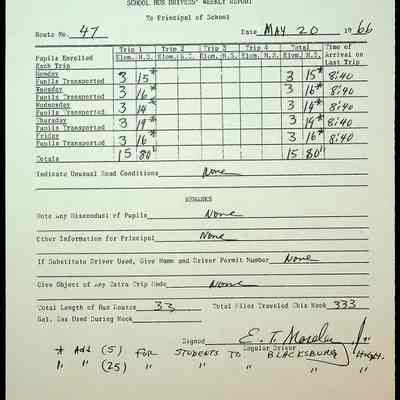 SCHOOL BUS DRIVERS' WEEKLY REPORT
To Principal of School
Route No. 47 Date MAY 20 1966
Trip 1 Trip 2 Trip 3 Trip 4 Total Time of
Pupils Enrolled Elem. H.S. Elem. H.S. Elem. H.S. Elem. H.S. Elem. H.S. Arrival on
Each Trip Last Trip
Monday
Pupils Transported 3 15* 3 15* 8:40
Tuesday
Pupils Transported 3 16* 3 16* 8:40
Wednesday
Pupils Transported 3 14* 3 14* 8:40
Thursday
Pupils Transported 3 19* 3 19* 8:40
Friday
Pupils Transported 3 16* 3 16* 8:40
Totals 15 80" 15 80"
Indicate Unusual Road Conditions None
REMARKS
Note Any Misconduct of Pupils None
Other Information for Principal None
If Substitute Driver Used, Give Name and Driver Permit Number None
Give Object of Any Extra Trip Made None
Total Length of Bus Route 33 Total Miles Traveled This Week 333
Gal. Gas Used During Week
Signed E. T. Jr.
Regular Driver
* Add (5) FOR STUDENTS TO BLACKSBURG Height.
" " (25) " " " " "